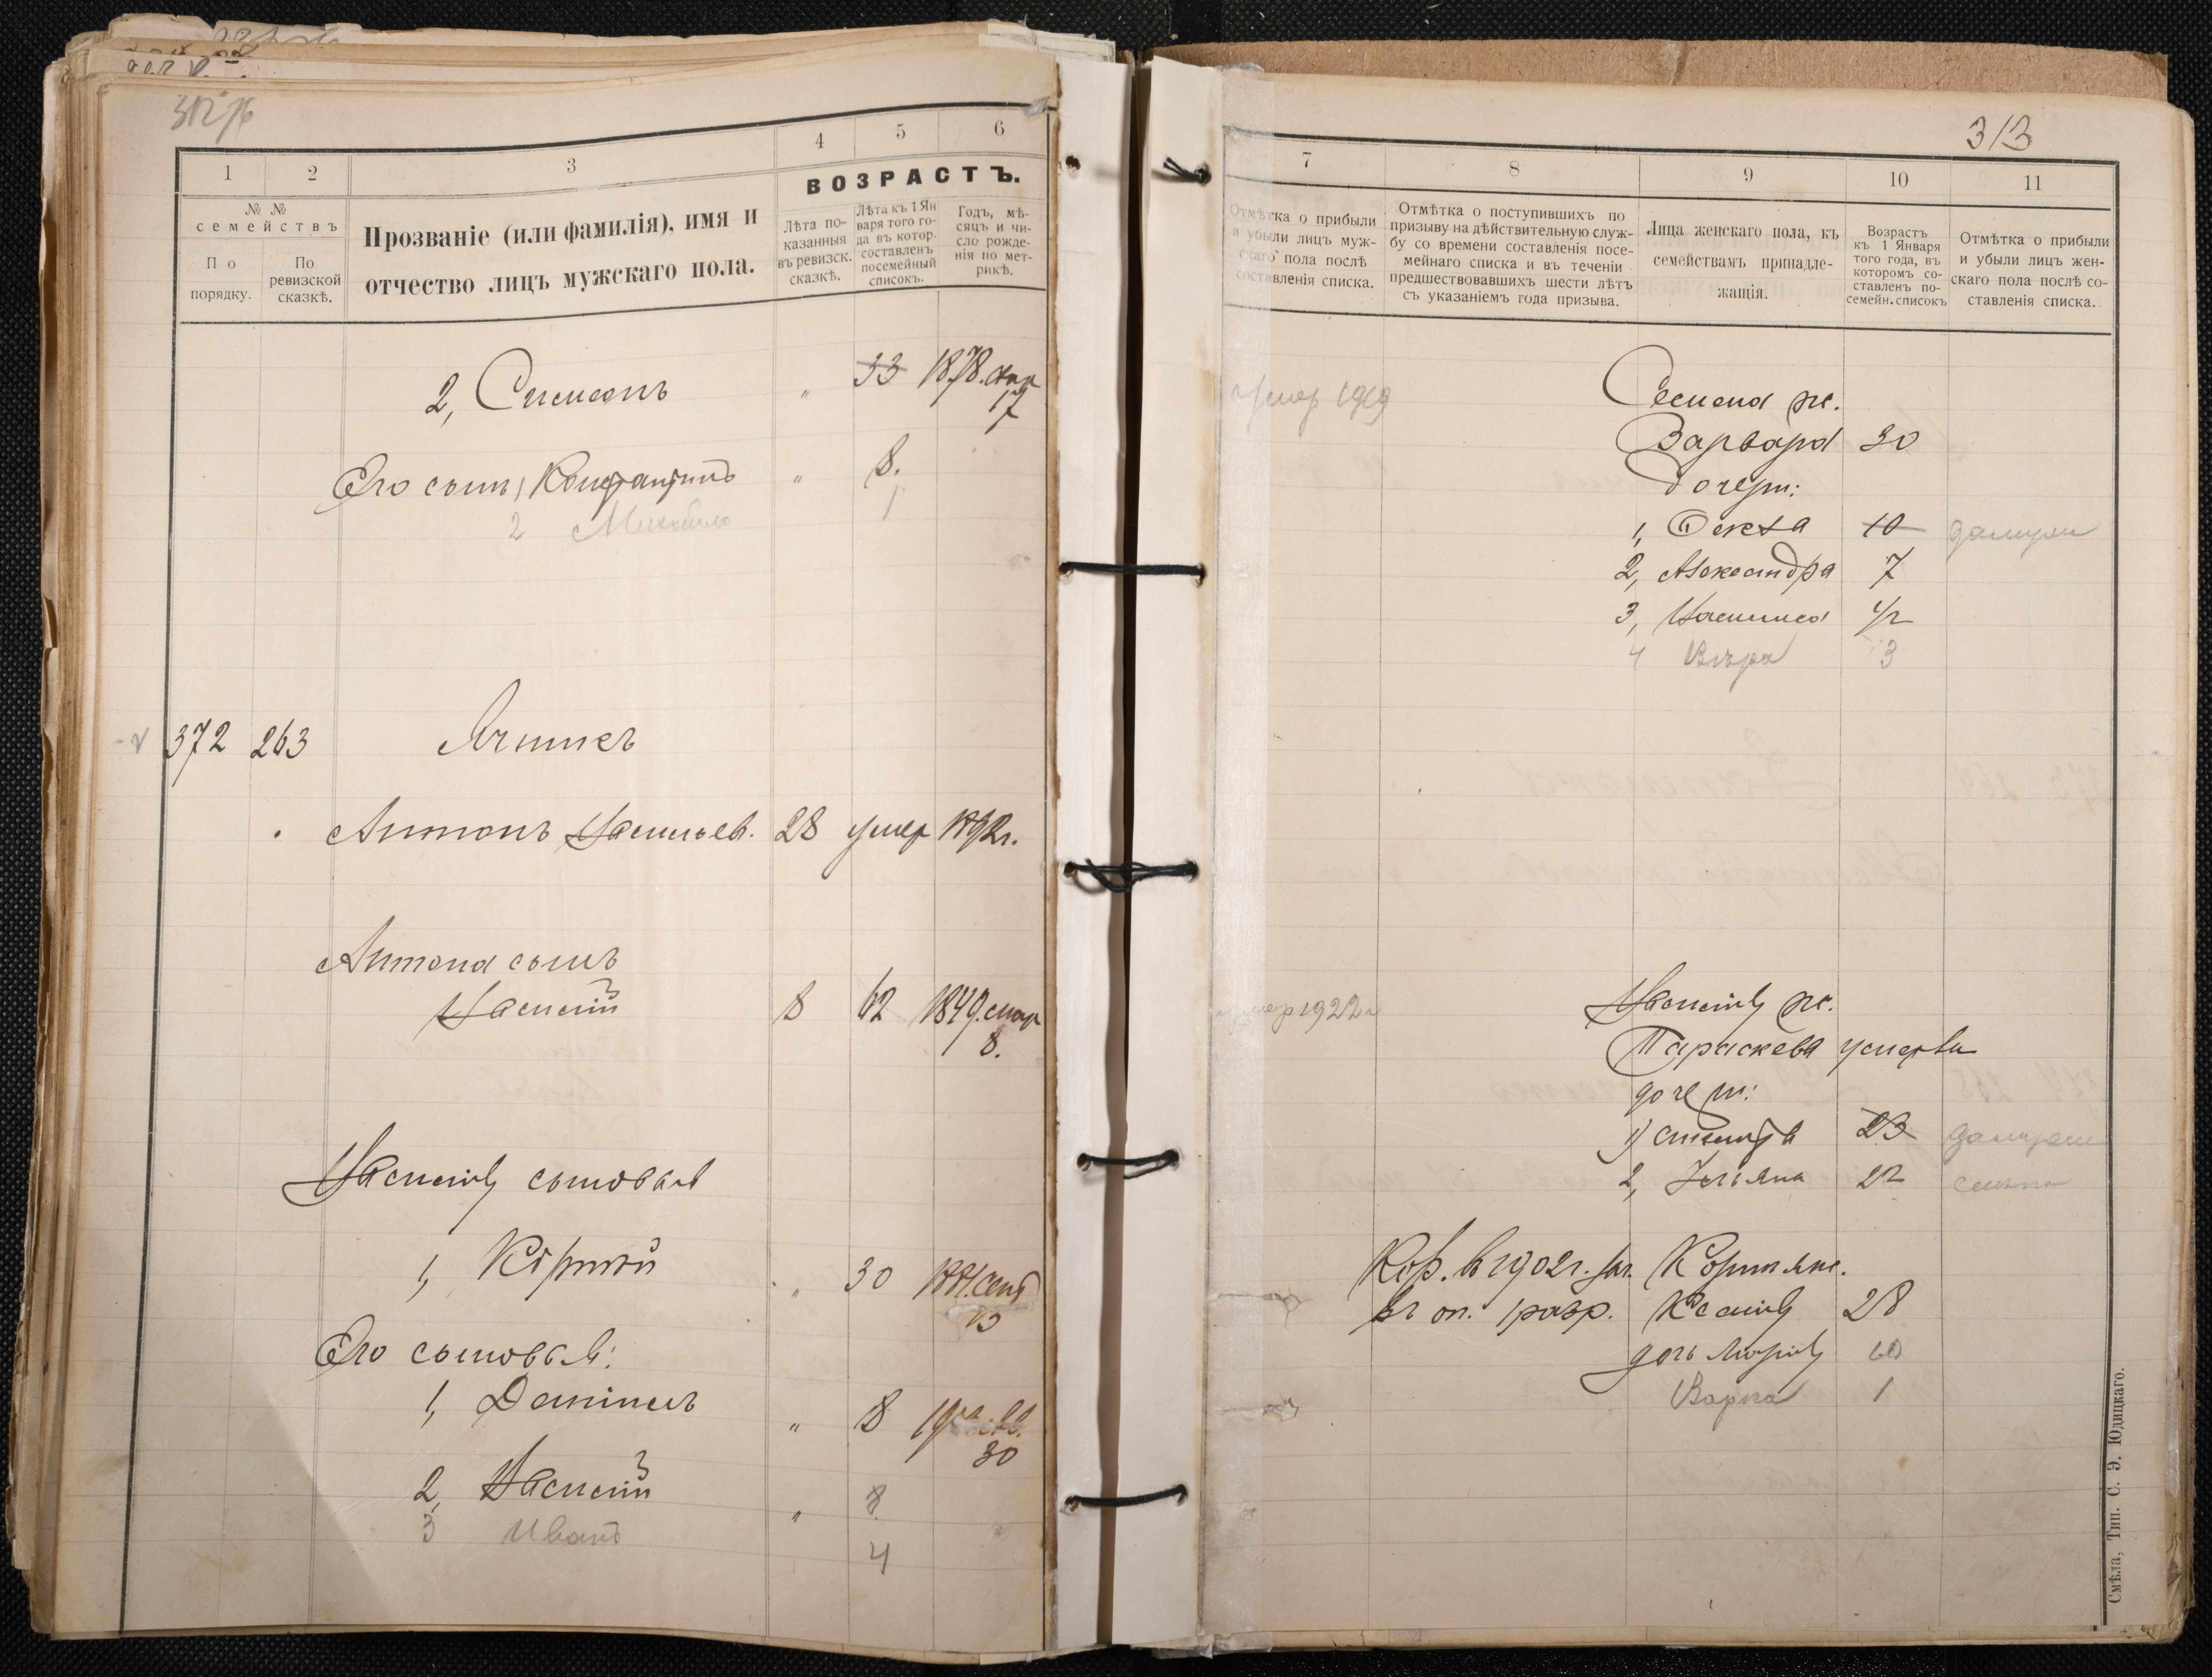 313
1
2
3
4
5
6
ВОЗРАСТЪ.
№ №
семействъ
По
порядку.
По
ревизской
сказкѣ.
Прозваніе (или фамилія), имя и
отчество лицъ мужскаго пола.
Лѣта по-
казанныя
въ ревизск.
сказкѣ.
Лѣта къ 1 Ян
варя того го-
да въ котор.
составленъ
посемейный
списокъ.
Годъ, мѣ-
сяцъ и чи-
сло рожде-
нія по мет-
рикѣ.
2, Симеонъ " 33 1878.
17
Его сынъ 1 Константинъ " 8.
2 1
372 263
Антонъ Васильев. 28 умер 1892г.
Антона сынъ
Василій 8 62 1849. мар
8.
Василія сыновья
1, Корнилій " 30 1881. сент
13
Его сыновья:
1, Даніилъ " 8
30
2, Василій "
3 Иванъ 4
7
8
9
10
11
Отмѣтка о прибыли
и убыли лицъ муж-
скаго пола послѣ
составленія списка.
Отмѣтка о поступившихъ по
призыву на дѣйствительную служ-
бу со времени составленія посе-
мейнаго списка и въ теченіи
предшествовавшихъ шести лѣтъ
съ указаніемъ года призыва.
Лица женскаго пола, къ
семействамъ принадле-
жащія.
Возрастъ
къ 1 Января
того года, въ
которомъ со-
ставленъ по-
семейн. списокъ
Отмѣтка о прибыли
и убыли лицъ жен-
скаго пола послѣ со-
ставленія списка.
умер 1919
Семена ж.
Варвара 30
дочери:
1, Фекла 10 замужем
2, Александра 7
3, 1/2
4 Вѣра 3
умер 1922г
Василія ж.
Параскева умерла
дочери:
1) 23 замужем
2, Ульяна 22
Кор. в 1902г. Корнил. ж.
въ оп. 1 разр. Ксенія 28
дочь Марія
Варка 1
Смѣла, Тип. С. Э. Юдицкаго.